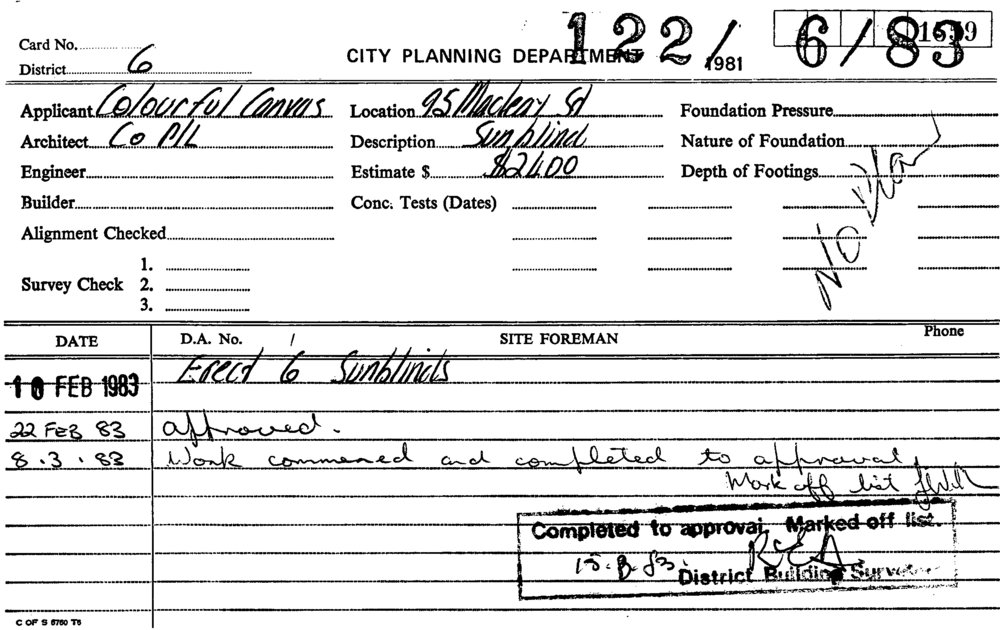 Card No.
District 6
CITY PLANNING DEPARTMENT
122/
1981
6/83
1559
Applicant Colourful Canvas Location 95 Macleay St Foundation Pressure
Architect Co P/L Description Sunblind Nature of Foundation
Engineer Estimate $ $2400 Depth of Footings
Builder Conc. Tests (Dates)
No Plan
Alignment Checked
1.
Survey Check 2.
3.
DATE D.A. No. / SITE FOREMAN Phone
10 FEB 1983 Erect 6 Sunblinds
22 FEB 83 approved.
8.3.83 Work commenced and completed to approval,
Mark off list
Completed to approval. Marked off list.
15.3.83. District Building Surveyor
C OF S 6760 T5